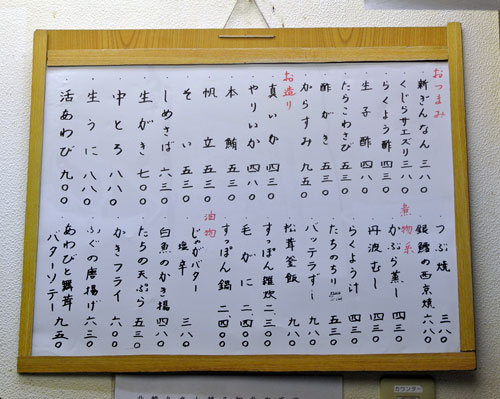 おつまみ
新ぎんなん 三八〇
くじらサエズリ 三八〇
らくよう酢 四三〇
生子酢 四三〇
たらこわさび 五三〇
酢がき 五三〇
からすみ 九五〇
お造り
真いか 四三〇
やりいか 四八〇
本鮪 五三〇
帆立 五三〇
そい 五三〇
しめさば 六三〇
生がき 七〇〇
中とろ 八八〇
生うに 八八〇
活あわび 九〇〇
つぶ焼 三八〇
銀鱈の西京焼 六八〇
煮物系
かぶら蒸し 四三〇
丹波むし 四三〇
らくよう汁 四三〇
たちのちり 五三〇
バッテラずし 九八〇
松茸釜飯 九八〇
すっぽん雑炊 二、三〇〇
毛がに 二、四〇〇
すっぽん鍋 二、四〇〇
油物
じゃがバター
塩辛 三八〇
白魚のかき揚 四八〇
たちの天ぷら 五三〇
かきフライ 六〇〇
ふぐの唐揚げ 六三〇
あわびと舞茸
バターソテー 九五〇
カウンター